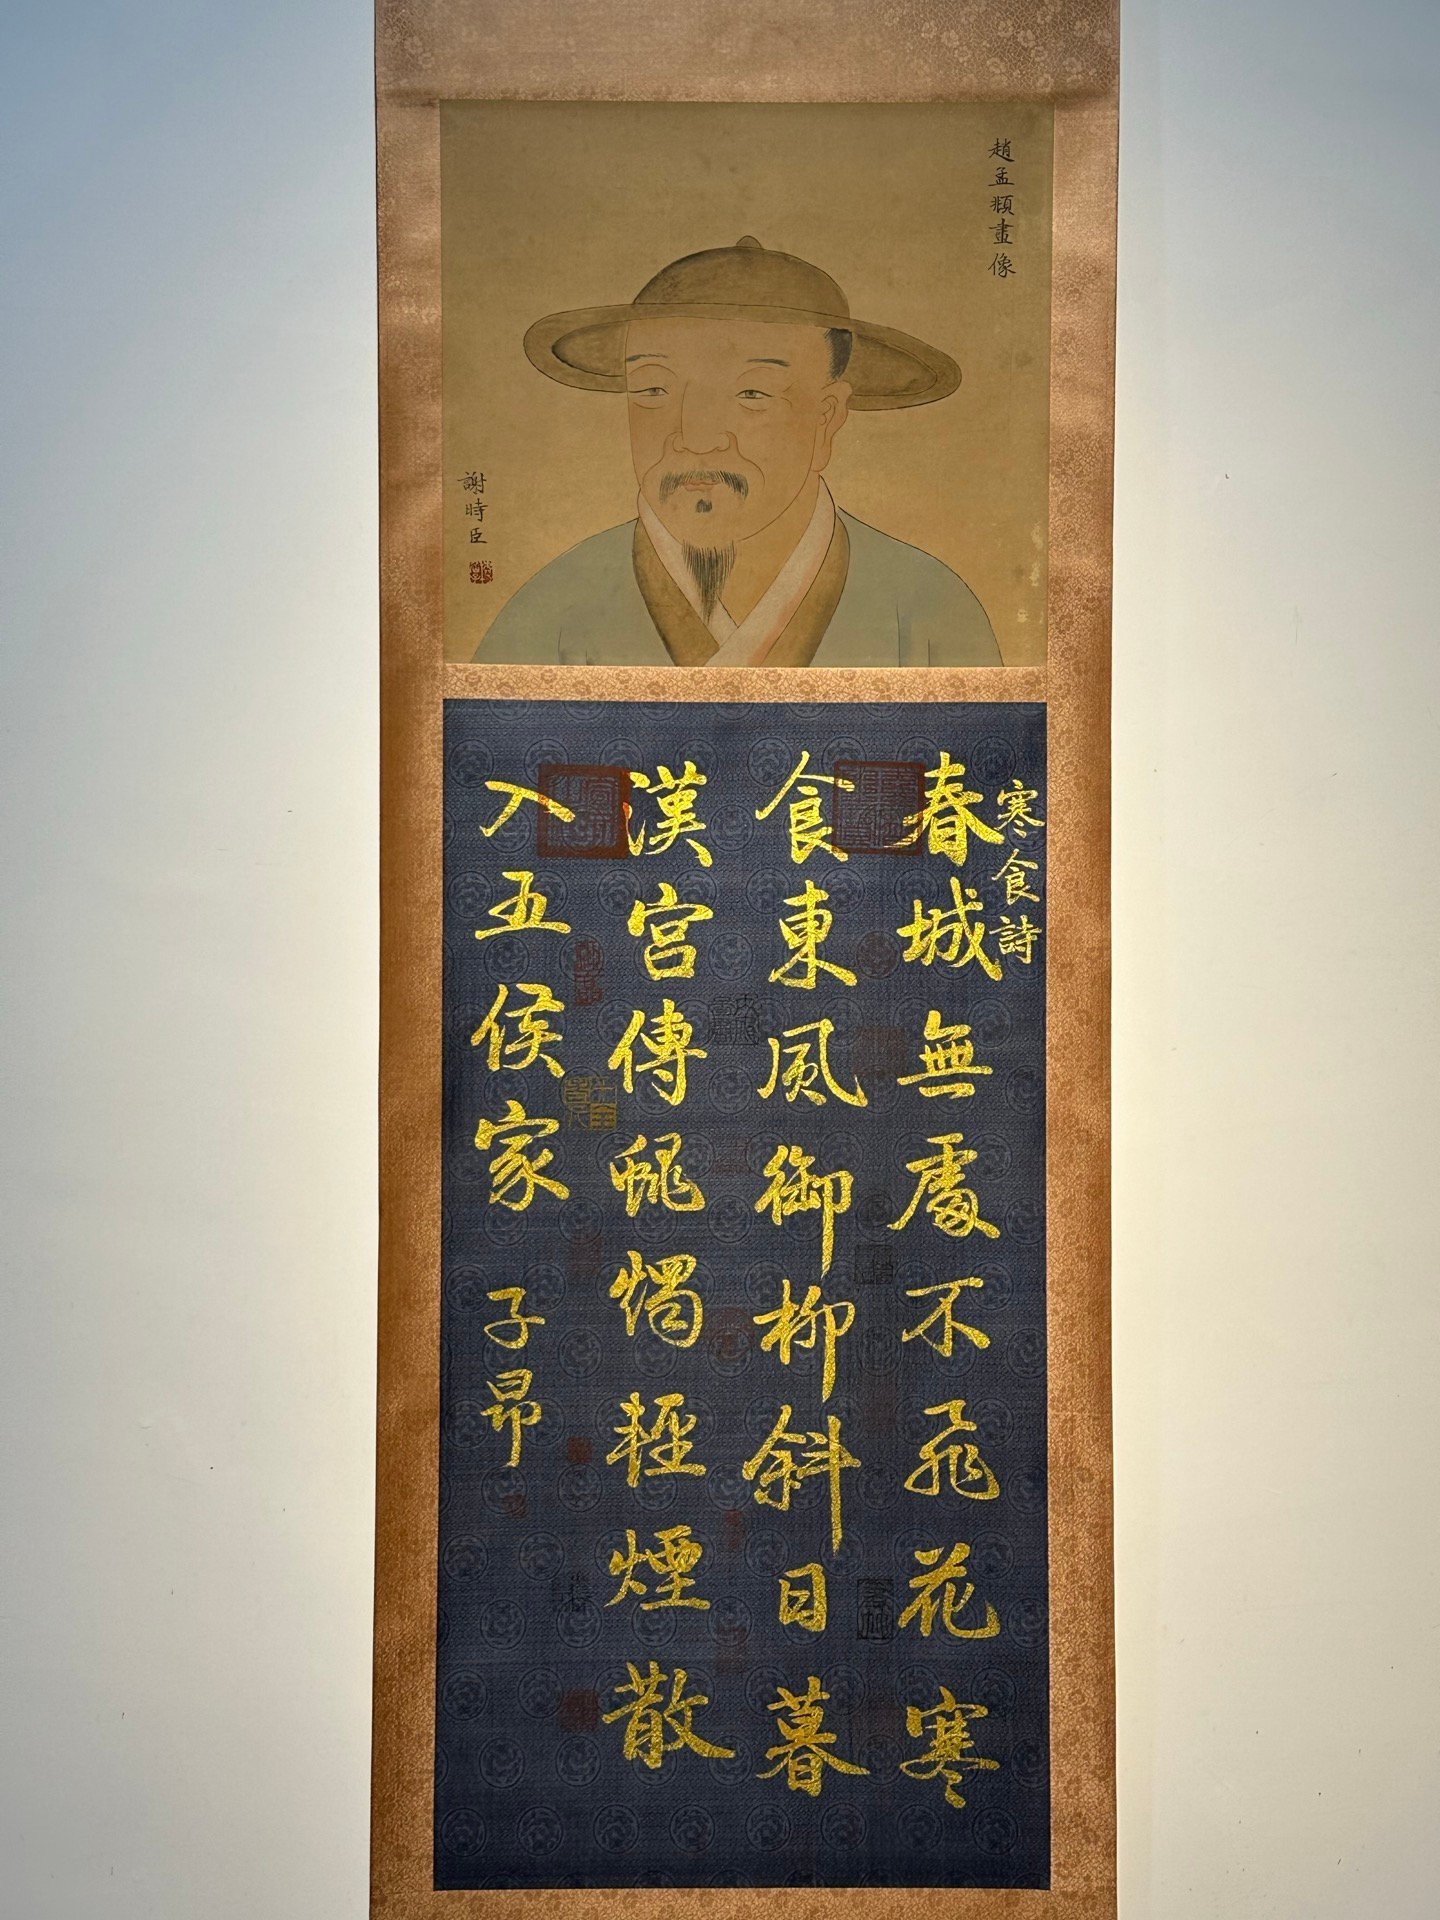 趙孟頫畫像
謝時臣
寒食詩
春城無處不飛花寒
食東風御柳斜日暮
漢宮傳蠟燭輕煙散
入五侯家
子昂